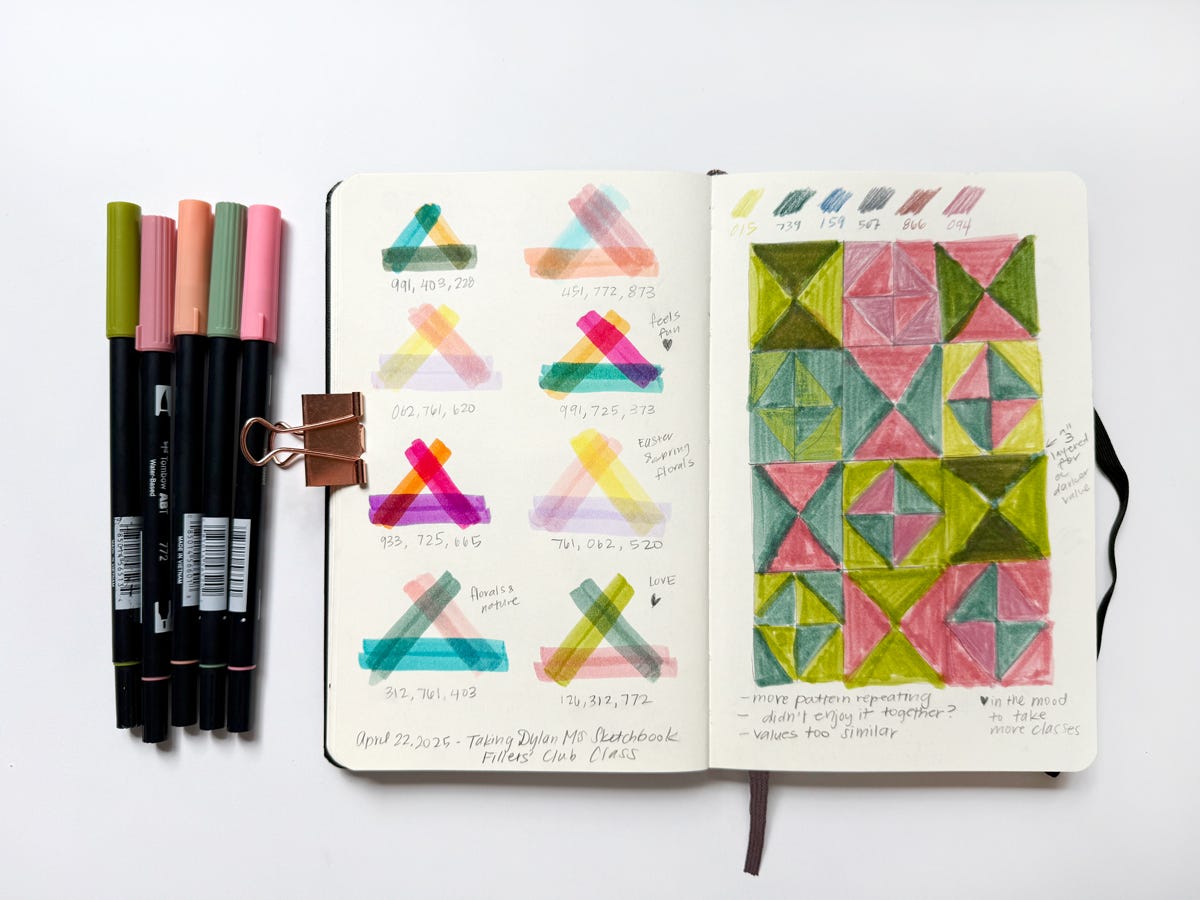 Tombow ABT 772
Water-Based
MADE IN VIETNAM
991, 403, 228
451, 772, 873
062, 761, 620
feels
fun
991, 725, 373
933, 725, 665
Easter
& spring
florals
761, 062, 520
florals &
nature
312, 761, 403
LOVE
126, 312, 772
April 22, 2025 - Taking Dylan M's Sketchbook
Fillers' Club Class
015 739 159 507 866 094
layered
for
a
darker
value
- more pattern repeating
- didn't enjoy it together?
- values too similar
in the mood
to take
more classes